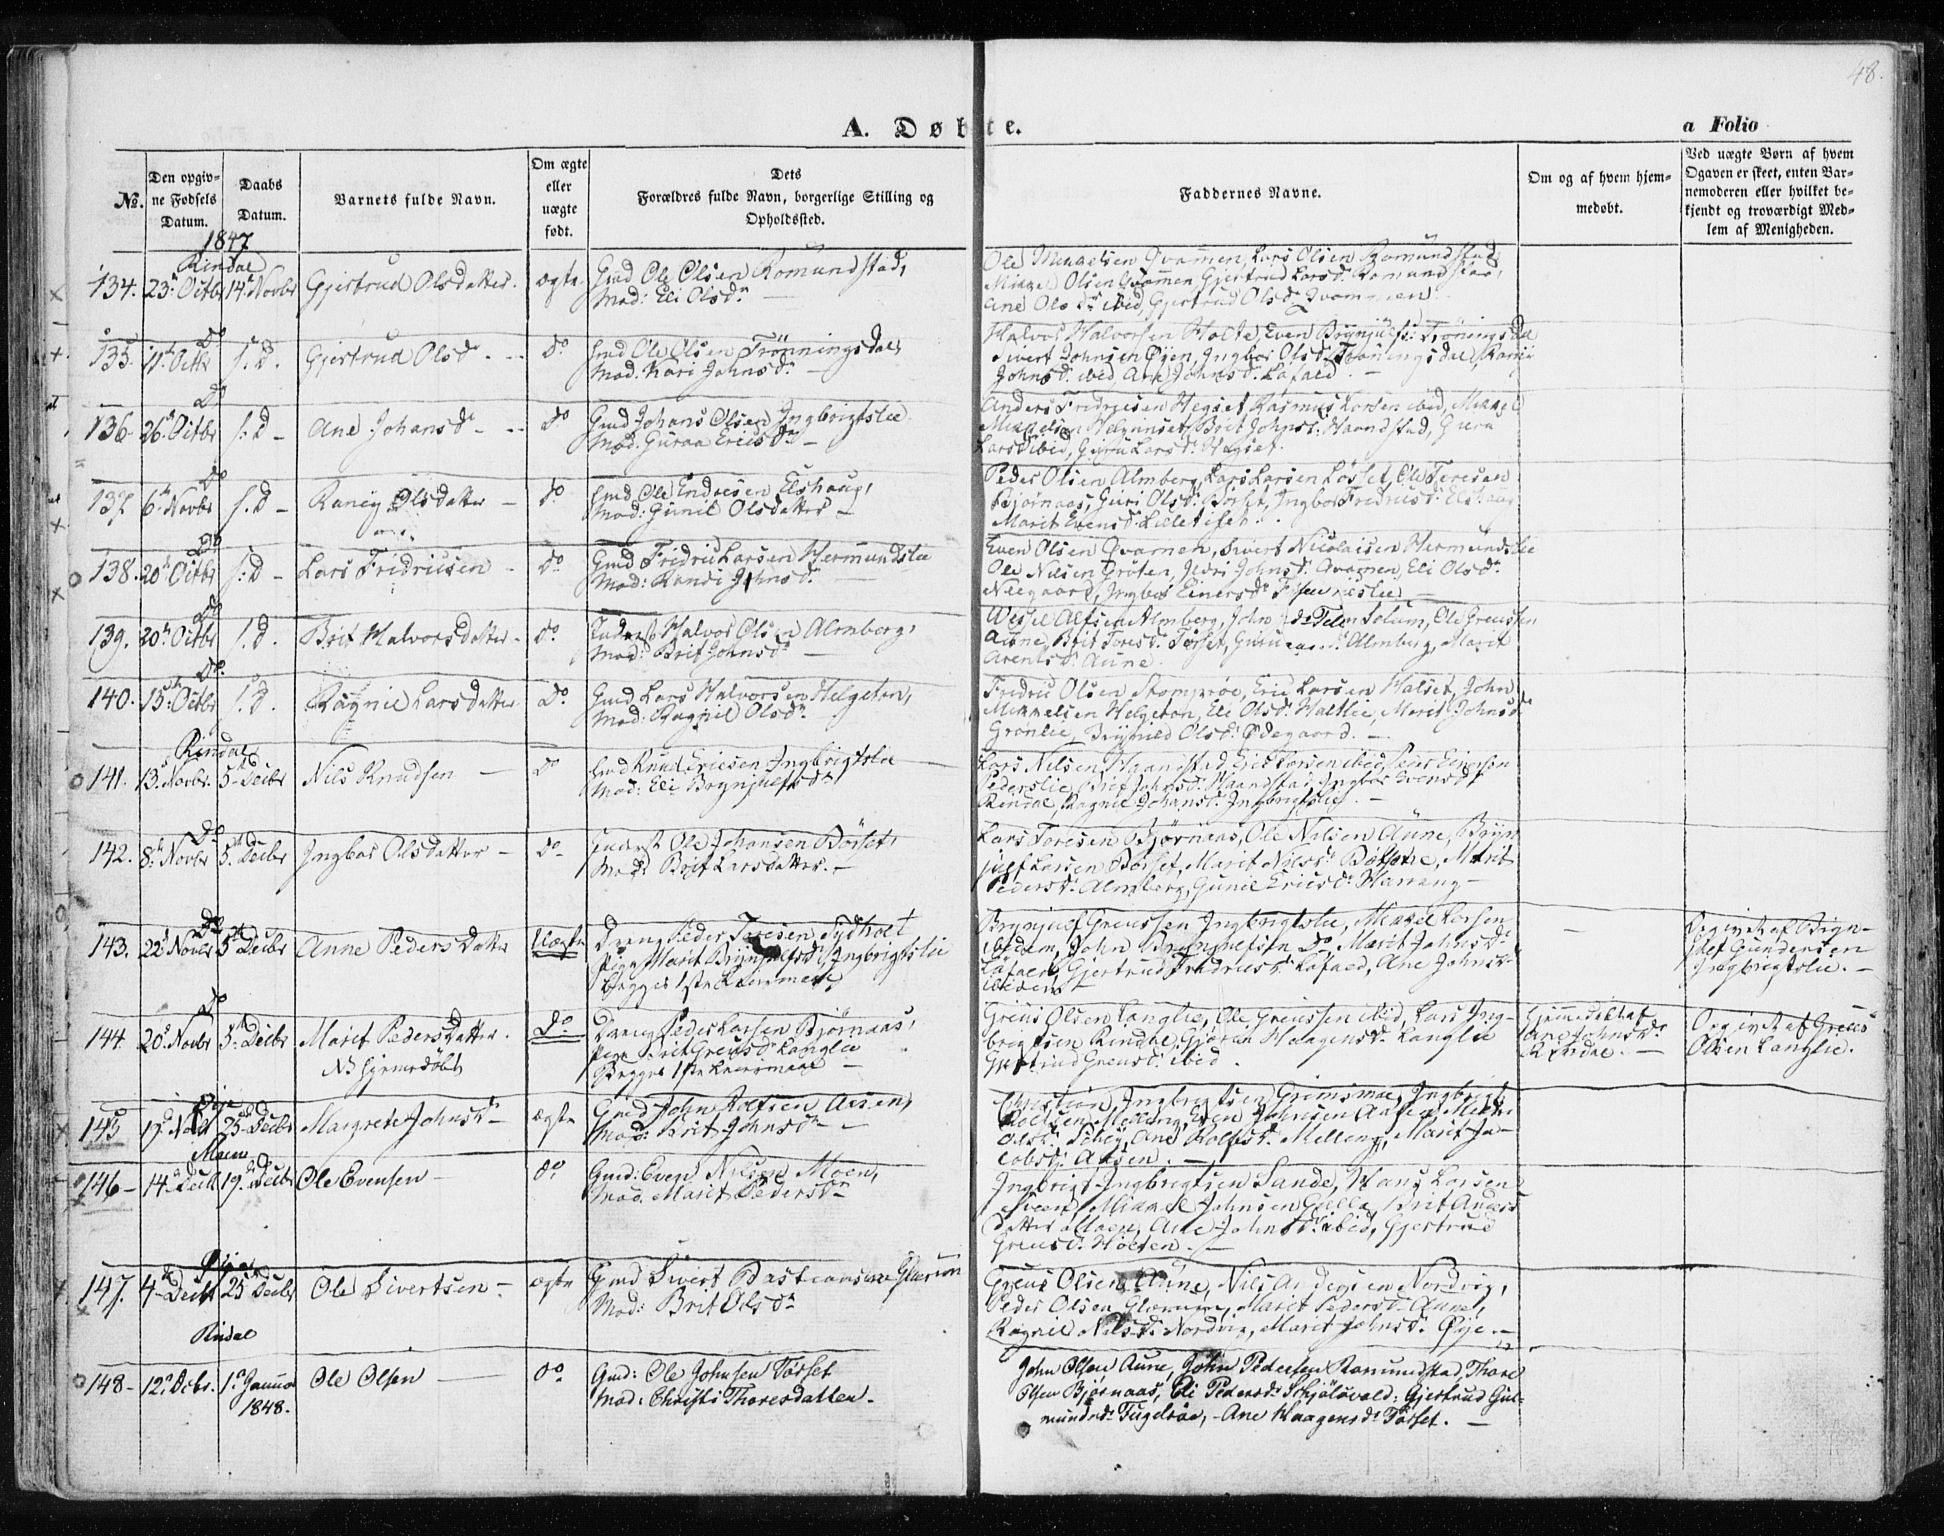 48.
A. Døbte.
a Folio
No.
Den opgivne Fødsels Datum.
Daabs Datum.
Barnets fulde Navn.
Om ægte eller uægte født.
Dets Forældres fulde Navn, borgerlige Stilling og Opholdssted.
Faddernes Navne.
Om og af hvem hjemmedøbt.
Ved uægte Børn af hvem Opgaven er skeet, enten Barnemoderen eller hvilket bekjendt og troværdigt Medlem af Menigheden.
1847
Rindal
134. 23d Octbr 14d Novbr Gjertrud Olsdatter. ægte Gmd Ole Olsen Romundstad,
Mod: Eli Olsdr
Ole Mikkelsen Qvammen, Lars Olsen Romundstad,
Mikkel Olsen Qvammen Gjertrud Larsd. Romundstad,
Ane Olsdr ibid, Gjertrud Olsd. Qvammen
Do
135. 11t Octbr s: D. Gjertrud Olsdr Do Gmd Ole Olsen Trønningsdal,
Mod: Kari Johnsdr
Halvor Halvorsen Holte, Even Brynjulfs: Trøningsdal
Sivert Johnsen Øyen, Ingbor Olsd. Trøningsdal,
Johnsd. ibid, Ane Johnsd. Løfald.
Do
136. 26d Octbr s: D Ane Johansdr Do Gmd Johans Olsen Ingbrigtslie
Mod: Guraa Ericsdr
Anders Fredricsen Hegset, Rasmus Larsen ibid, Mikkel
Mikkelsen Helgunset, Brit Johnsd: Haandstad, Guru
Larsd ibid, Guru Larsd: Hegset.
Do
137. 6t Novbr s. D Ranei Olsdatter Do Gmd Ole Endresen Elshaug,
Mod: Gunil Olsdatter
Peder Olsen Almberg, Lars Larsen Løset, Ole Toresen
Bjørnaas, Guri Olsd: Børset, Ingbor Fredricsd: Elshaug
Marit Evensd: Lilletiset.
Do
138. 20d Octbr s: D Lars Fridricsen Do Gmd Fridric Larsen Hermundslie
Mod: Randi Johnsdr
Even Olsen Qvamen, Sivert Nicolaisen Hermundslie
Ole Nilsen Grøten, Ildri Johnsd. Qvamen, Eli Olsdr
Neegaard, Ingbor Einersdr
Do
139. 20d Octbr s. D. Brit Halvorsdatter Do Inderst Halvor Olsen Almberg,
Mod: Brit Johnsdr
Wessel Alfsen Almberg, John Solum, Ole Greussen
Aune, Brit Toresd. Tørset, Guru Almberg, Marit
Arentsd: Aune.
Do
140. 15d Octbr s. D. Ragnil Larsdatter Do Gmd Lars Halvorsen Helgeton,
Mod: Ragnil Olsdr
Fredric Olsen Stomprøe, Eric Larsen Halset, John
Mikkelsen Helgeton, Eli Olsd: Haltlie, Marit Johnsdr
Grønlie, Brynild Olsd: Ødegaard.
Rindal
141. 13d Novbr. 5t Decbr Nils Knudsen Do Gmd Knud Ericsen Ingbrigtslie
Mod: Eli Brynjulfsdr
Lars Nilsen Haandstad, Eric Larsen ibid, Peder Einersen
Pederslie, Brit Johnsd: Haandstad, Ingbor Evensdr
Rindal, Ragnil Johansd. Ingbrigtslie.
Do
142. 8t Novbr 5t Decbr Ingbor Olsdatter Do Inderst Ole Johansen Børset,
Mod: Brit Larsdatter.
Lars Toresen Bjørnaas, Ole Nilsen Aune, Bryn-
julf Larsen Børset, Marit Nilsd: Marit
Pedersd. Almberg, Gunil Ericsd: Harrang
Do
143. 22d Novbr 5t Decbr Anne Peders Datter Uægte Dreng Peder Toresen Sydholt
Pige Marit Brynjulfsd: Ingbrigtslie
begges 1ste Leiermaal
Brynjulf Greussen Ingbrigtslie, Mikkel Larsen
ibidem, John Brynjulfsen Do, Marit Johnsdr
Løfald, Gjertrud Fredricsd: Løfald, Ane Johnsdr
ibidem
Opgivet af Bryn-
julf Gundersen
Ingbrigtslie.
Do
144. 20d Novbr 5t Decbr Marit Pedersdatter.
NB Hjemedøbt
Do Dreng Peder Larsen Bjørnaas,
Pige Brit Greusd. Langlie
Begges 1ste Leiermaal
Greus Olsen Langlie, Ole Greussen ibid, Lars Ing-
brigtsen Rindal, Gjøren Halagensd. Langlie
Gjertrud Greusd: ibid.
Hjemedøbt af
Ane Johnsdr
Rindal.
Opgivet af Greus
Olsen Langlie.
Øye
145 17d Novbr 25d Decbr Margrete Johnsdr ægte Gmd John Rolfsen Aasen,
Mod: Brit Johnsdr
Christian Ingbrigtsen Grimsmoe, Ingbrigt
Rolfsen Melling, Even Johnsen Aasen, Mikkel
Ane Rolfsd: Melling, Marit Ja-
cobsd: Aasen.
Moen
146 14d Decbr 19d Decbr Ole Evensen Do Gmd: Even Nilsen Moen,
Mod. Marit Pedersdr
Ingbrigt Ingbrigtsen Sande, Hans Larsen
Sveen, Mikkel Johnsen Gulla, Brit Anders
datter Moen, Ane Johnsdr ibid, Gjertrud
Greusd: Holten.
Øye
147. 4d Decbr 25d Decbr Ole Sivertsen ægte Gmd Sivert Bastiansen Glærum
Mod: Brit Olsdr
Greus Olsen Aune, Nils Andersen Nordvig,
Peder Olsen Glærum, Marit Pedersd. Aune,
Ragnil Nilsd: Nordvig, Marit Johnsd. Øye.
Rindal
148 12d Decbr. 1d Januar
1848.
Ole Olsen Do Gmd: Ole Johnsen Tørset
Mod: Christi Thoresdatter.
John Olsen Aune, John Pedersen Romundstad, Thore
Olsen Bjørnaas, Eli Pedersd: Skjølsvold, Gjertrud Gul-
mundsd: Fugelsøe, Ane Haagensd: Tørset.